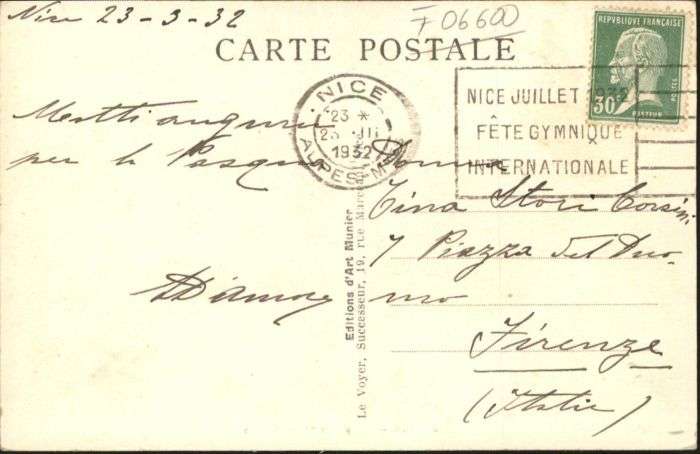 Nice 23-3-32
F 06600
CARTE POSTALE
REPUBLIQUE FRANÇAISE
POSTES
30c
PASTEUR
NICE
23 *
23 -III
1932
ALPES-MMES
NICE JUILLET 1932
FÊTE GYMNIQUE
INTERNATIONALE
Molti auguri
per la Pasqua
D'Amory
Editions d'Art Munier
Le Voyer, Successeur, 19, rue
Donna
Tina Stori Corsini
7 Piazza del Duo-
mo
Firenze
(Italie)